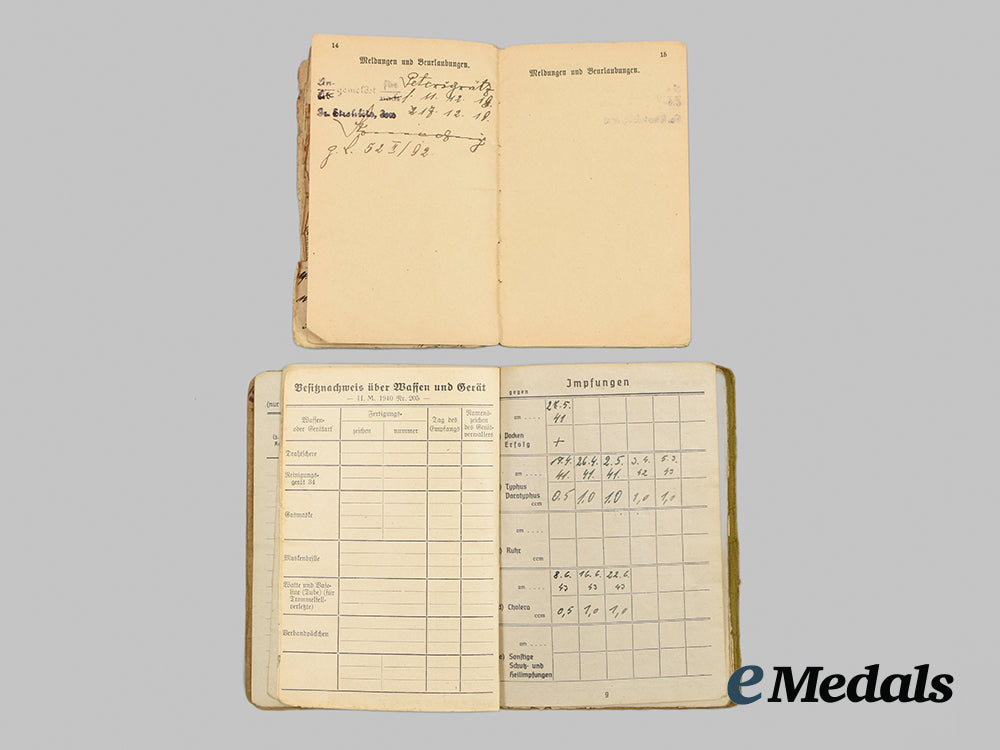 14
Meldungen und Beurlaubungen.
An-
gemeldet
Petersgrätz
1. 11. 42. 18.
Gr. Strehlitz, den 217. 12. 18.
g. L. 52 II/92.
15
Meldungen und Beurlaubungen.
(nur
Besitznachweis über Waffen und Gerät
— H. M. 1940 Nr. 205 —
Waffen-
oder Gerätart
Fertigungs-
zeichen
nummer
Tag des
Empfangs
Namens-
zeichen
des Gerät-
verwalters
Drahtschere
Reinigungs-
gerät 34
Gasmaske
Maskenbrille
Watte und Vase-
line (Tube) (für
Trommelfell-
verletzte)
Verbandpäckchen
Impfungen
gegen
am ....
28.5.
41
) Pocken
Erfolg
+
am ....
19.4. 26.4. 2.5. 3.4. 5.3.
41. 41. 41. 42 43
) Typhus
Paratyphus
ccm
0,5 1,0 1,0 1,0 1,0
am ....
) Ruhr
ccm
am ....
8.6. 16.6. 22.6.
43 43 43
d) Cholera
ccm
0,5 1,0 1,0
am ....
e) Sonstige
Schutz- und
Heilimpfungen
9
eMedals